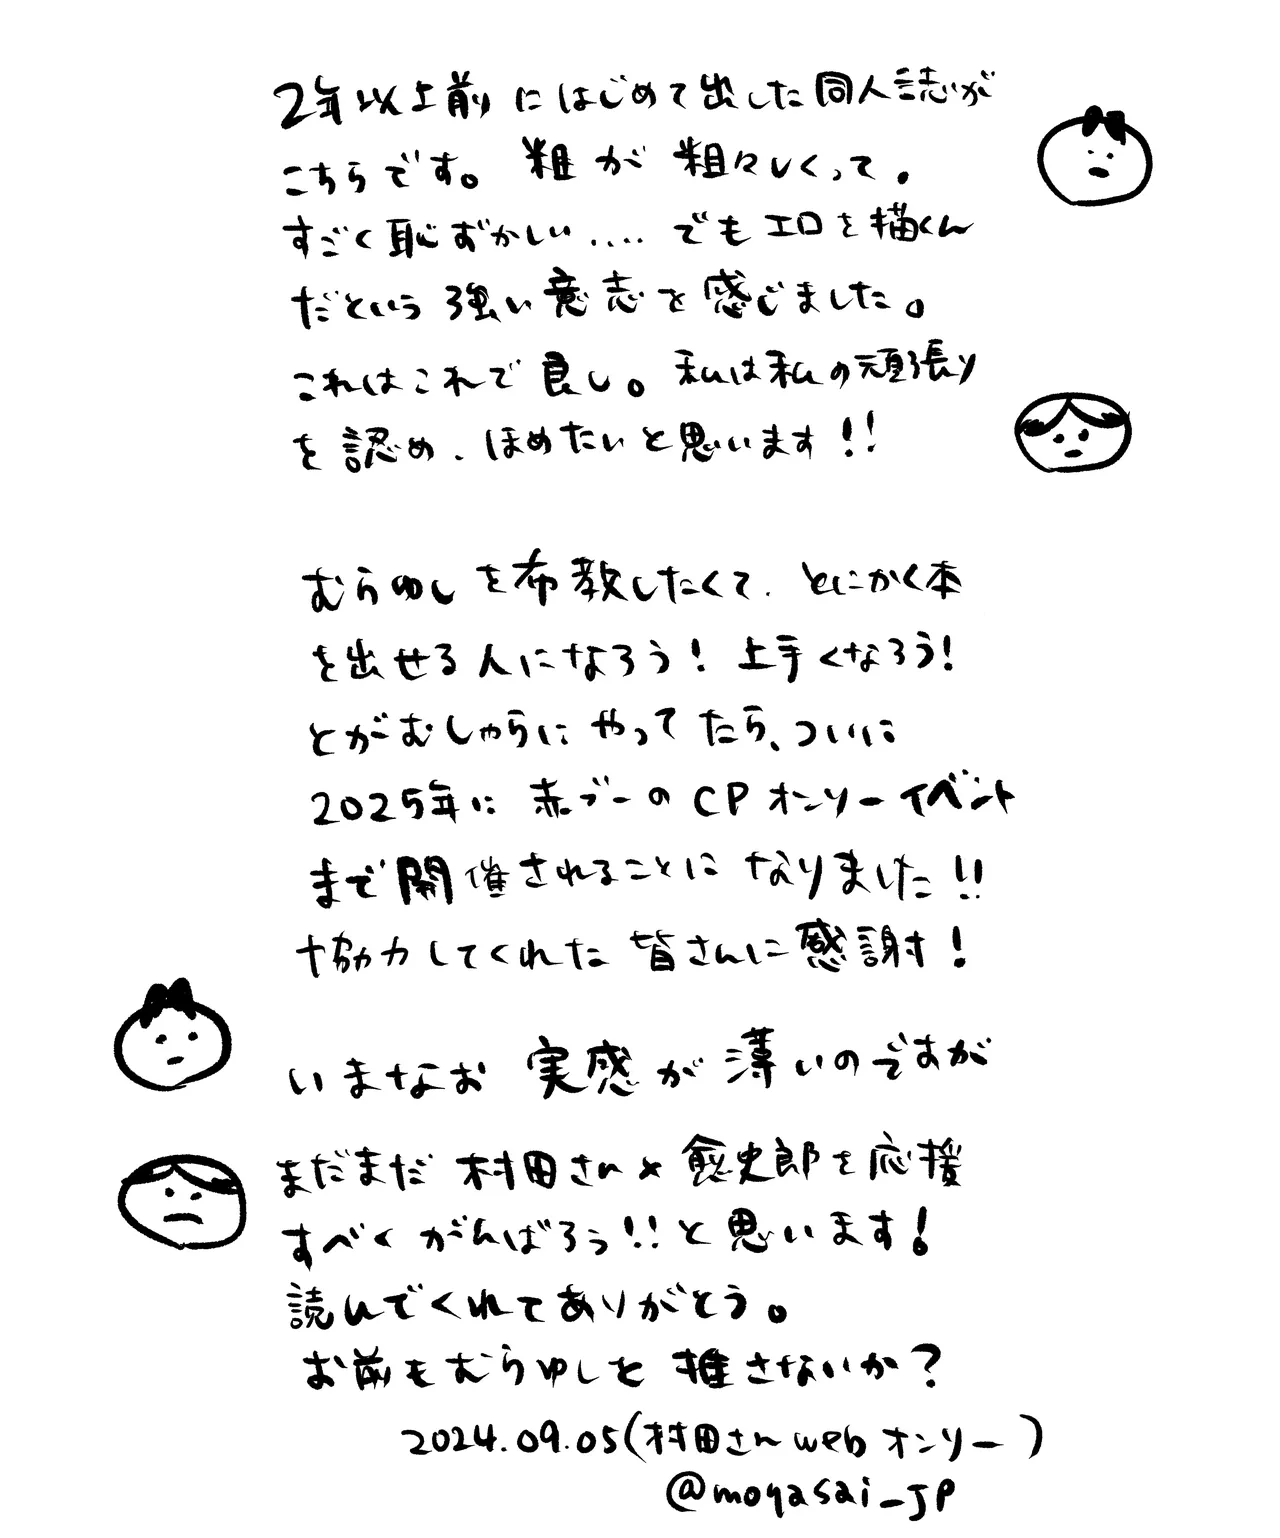 2年以上前にはじめて出した同人誌が
こちらです。粗が粗々しくって.
すごく恥ずかしい....でもエロを描くん
だという強い意志を感じました。
これはこれで良し。私は私の頑張り
を認め、ほめたいと思います!!
むらゆしを布教したくて、とにかく本
を出せる人になろう!上手くなろう!
とがむしゃらにやってたら、ついに
2025年に赤ブーのCPオンリーイベント
まで開催されることになりました!!
協力してくれた皆さんに感謝!
いまなお実感が薄いのですが
まだまだ村田さん×愈史郎を応援
すべくがんばろう!!と思います!
読んでくれてありがとう。
お前もむらゆしを推さないか?
2024.09.05(村田さんwebオンリー)
@moyasai_JP